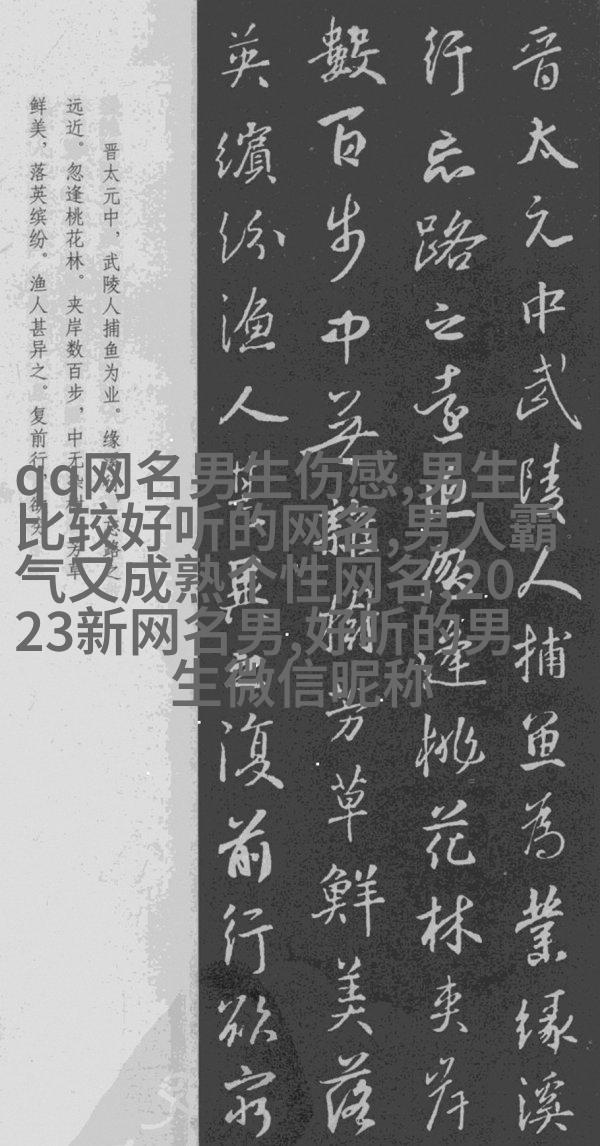 晋太元中武陵人捕鱼为業缘溪
行忘路之遠近忽逢桃花林夹岸
數百步中无雜樹芳草鮮美落
英繽纷渔人甚異之復前行欲窮
晋太元中，武陵人捕鱼为业。缘
远近。忽逢桃花林。夹岸数百步，中无
鲜美，落英缤纷。渔人甚异之。复前行
qq网名男生伤感,男生
比较好听的网名,男人霸
气又成熟个性网名,20
23新网名男,好听的男
生微信昵称